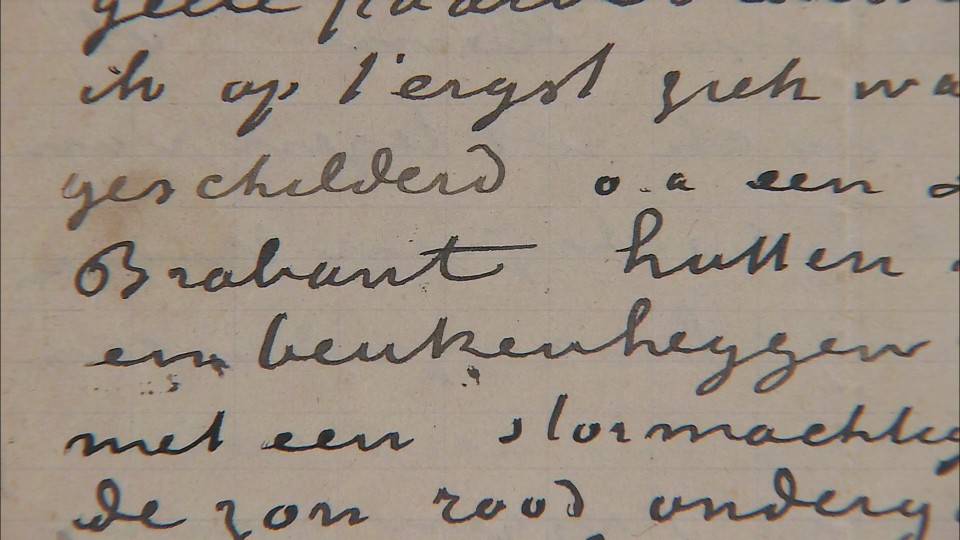 ik op 't ergst ziek wa
geschilderd o.a een
Brabant hutten
en beukenheggen
met een stormachtig
de zon rood onderg